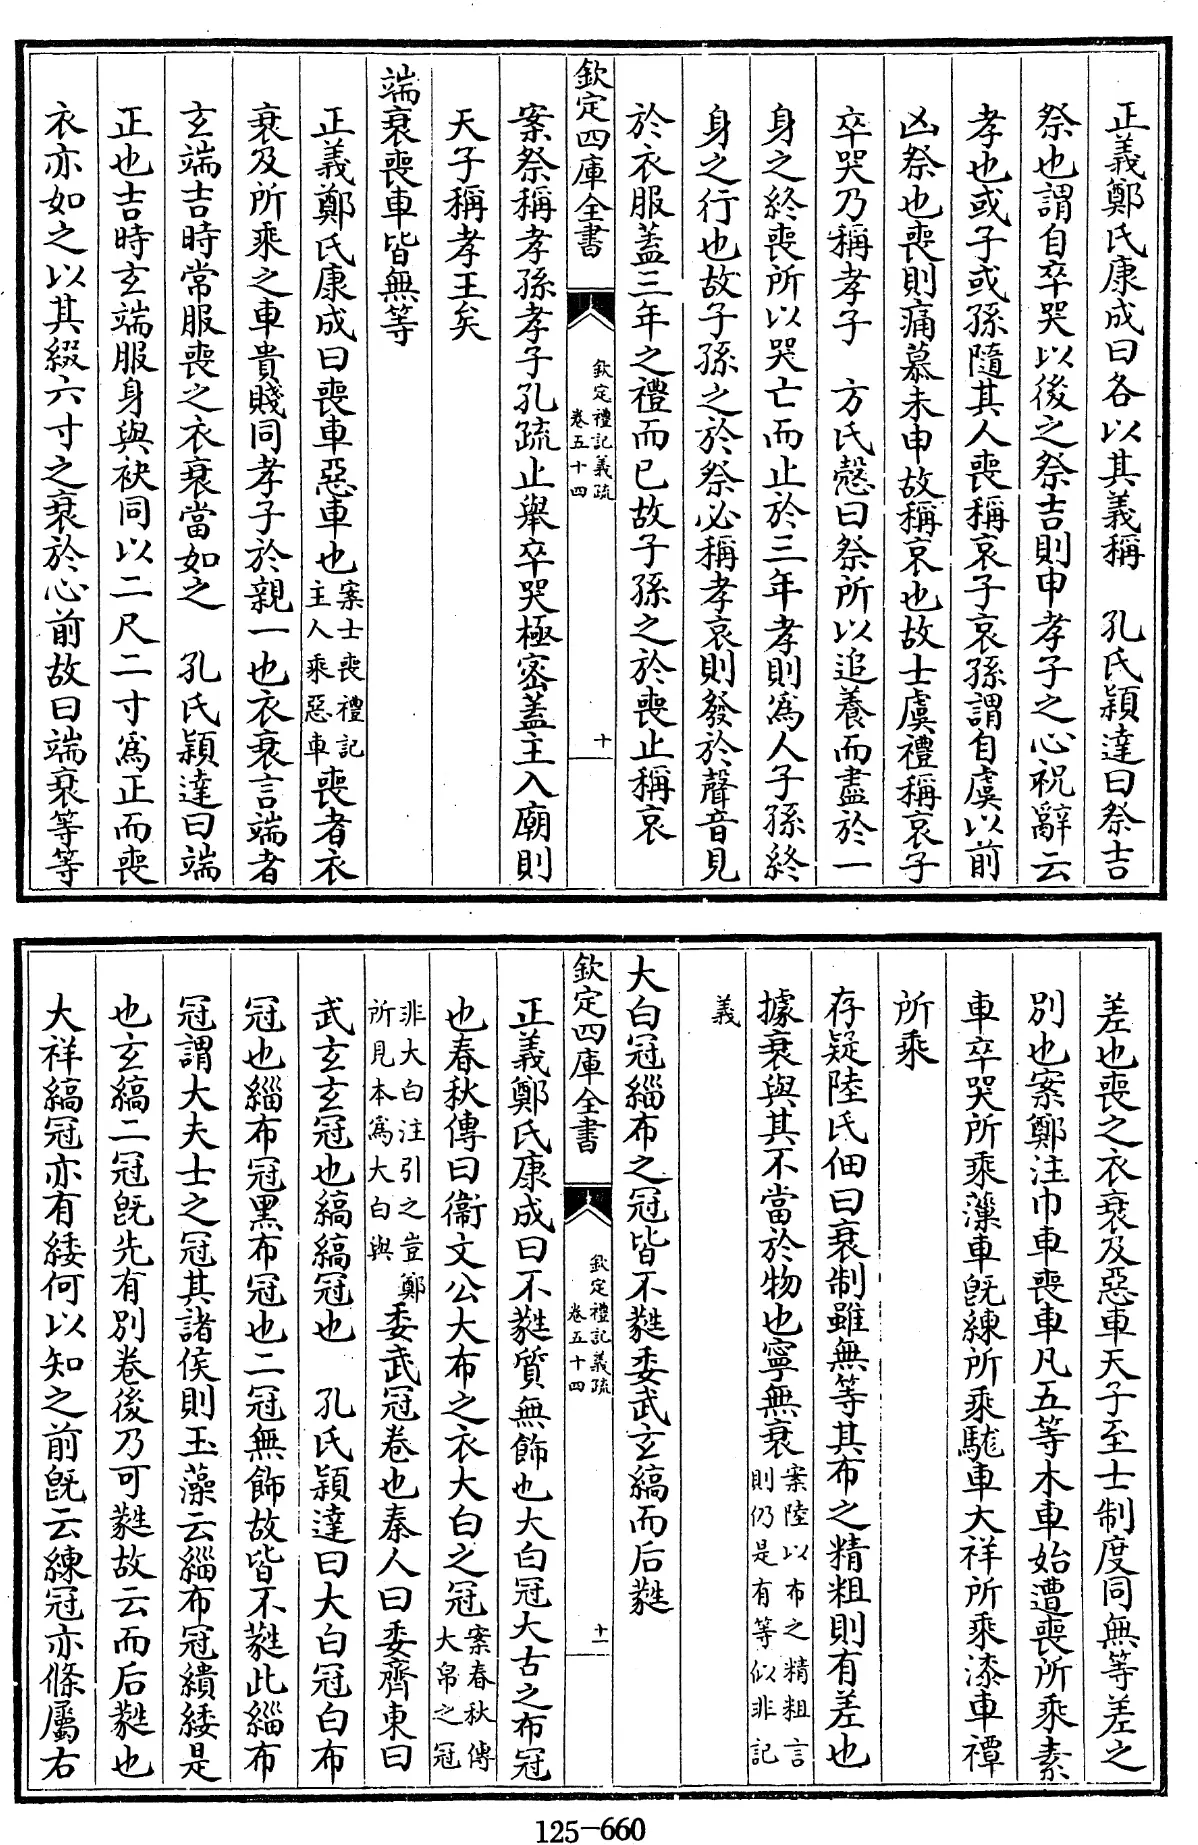 正義鄭氏康成曰各以其義稱　孔氏穎達曰祭吉
祭也謂自卒哭以後之祭吉則申孝子之心祝辭云
孝也或子或孫隨其人喪稱哀子哀孫謂自虞以前
凶祭也喪則痛慕未申故稱哀也故士虞禮稱哀子
卒哭乃稱孝子　方氏慤曰祭所以追養而盡於一
身之終喪所以哭亡而止於三年孝則為人子孫終
身之行也故子孫之於祭必稱孝哀則發於聲音見
於衣服蓋三年之禮而已故子孫之於喪止稱哀
欽定四庫全書
欽定禮記義疏
卷五十四
十
案祭稱孝孫孝子孔疏止舉卒哭極密蓋主入廟則
天子稱孝王矣
端衰喪車皆無等
正義鄭氏康成曰喪車惡車也案士喪禮記主人乘惡車喪者衣
衰及所乘之車貴賤同孝子於親一也衣衰言端者
玄端吉時常服喪之衣衰當如之　孔氏穎達曰端
正也吉時玄端服身與袂同以二尺二寸為正而喪
衣亦如之以其綴六寸之衰於心前故曰端衰等等
差也喪之衣衰及惡車天子至士制度同無等差之
別也案鄭注巾車喪車凡五等木車始遭喪所乘素
車卒哭所乘薻車既練所乘駹車大祥所乘漆車禫
所乘
存疑陸氏佃曰衰制雖無等其布之精粗則有差也
據衰與其不當於物也寧無衰案陸以布之精粗言則仍是有等似非記
義
大白冠緇布之冠皆不蕤委武玄縞而后蕤
欽定四庫全書
欽定禮記義疏
卷五十四
十一
正義鄭氏康成曰不蕤質無飾也大白冠大古之布冠
也春秋傳曰衞文公大布之衣大白之冠案春秋傳大帛之冠
非大白注引之豈鄭所見本為大白與委武冠卷也秦人曰委齊東曰
武玄玄冠也縞縞冠也　孔氏穎達曰大白冠白布
冠也緇布冠黑布冠也二冠無飾故皆不蕤此緇布
冠謂大夫士之冠其諸侯則玉藻云緇布冠繢緌是
也玄縞二冠既先有別卷後乃可蕤故云而后蕤也
大祥縞冠亦有緌何以知之前既云練冠亦條屬右
125-660